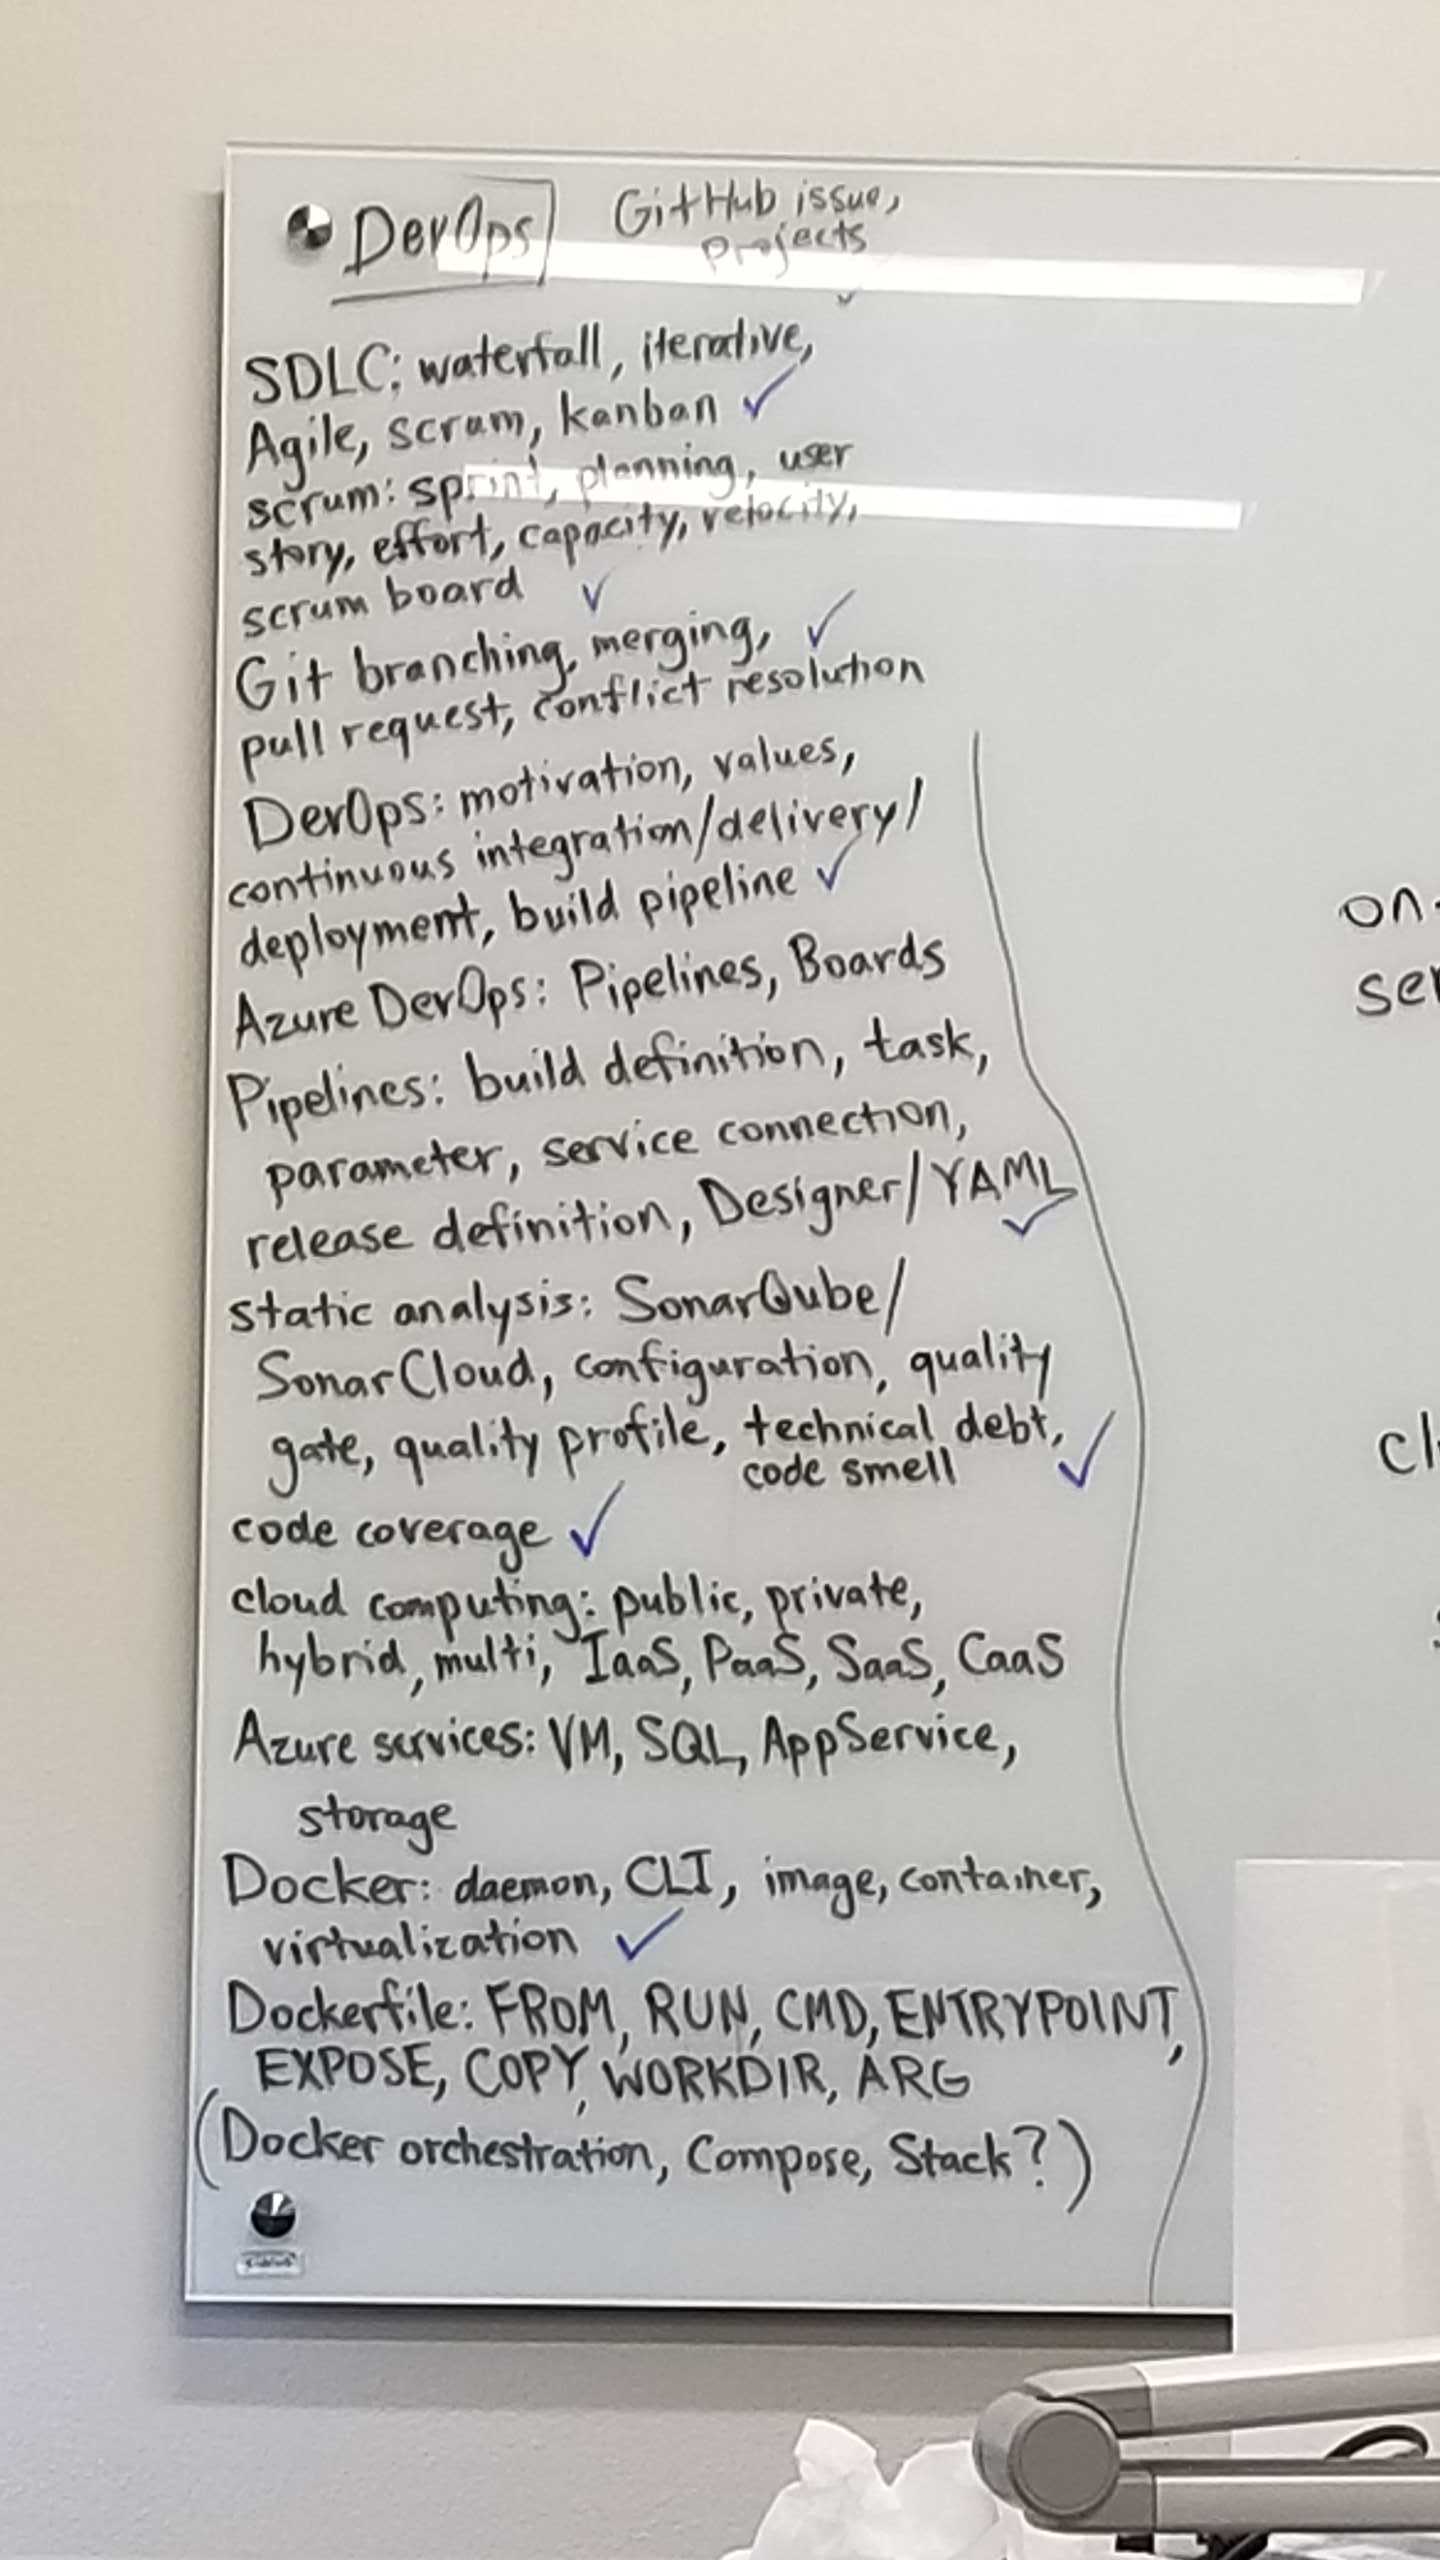 DevOps
GitHub issue,
projects
SDLC: waterfall, iterative,
Agile, scrum, kanban ✓
scrum: sprint, planning, user
story, effort, capacity, velocity,
scrum board ✓
Git branching, merging, ✓
pull request, conflict resolution
DevOps: motivation, values,
continuous integration/delivery/
deployment, build pipeline ✓
Azure DevOps: Pipelines, Boards
Pipelines: build definition, task,
parameter, service connection,
release definition, Designer/YAML ✓
static analysis: SonarQube/
SonarCloud, configuration, quality
gate, quality profile, technical debt, ✓
code smell
code coverage ✓
cloud computing: public, private,
hybrid, multi, IaaS, PaaS, SaaS, CaaS
Azure services: VM, SQL, AppService,
storage
Docker: daemon, CLI, image, container,
virtualization ✓
Dockerfile: FROM, RUN, CMD, ENTRYPOINT,
EXPOSE, COPY, WORKDIR, ARG
(Docker orchestration, Compose, Stack?)
on-